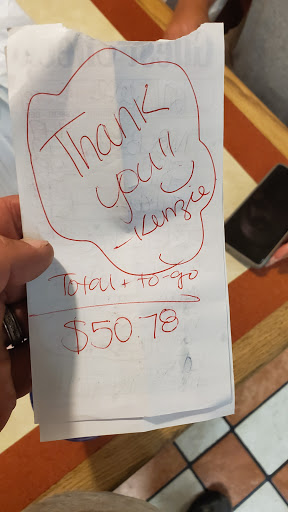 Thank
you!!
-Kenzie
Total + to-go
$50.78